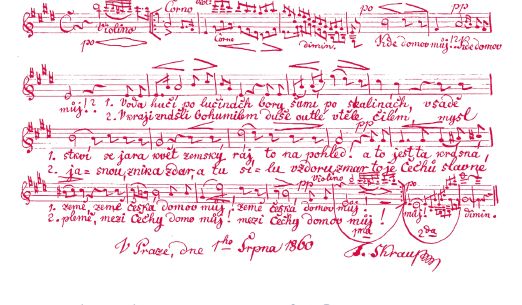 Corno
po pp
Violino
po Corno dimin. Kde domov můj!? Kde domov
můj!? 1. Voda hučí po lučinách bory šumí po skalinách, v sadě
2. V kraji znášli bohumilém duše outlé v těle čilém, mysl
1. stkví se jara květ zemský ráj to na pohled! a to jest ta krásná,
2. ja = snou znik a zdar, a tu sí = lu vzdoru zmar to je Čechů slavné
violino pp po
1. země, země česká domov můj! země česká! domov můj! můj! dimin.
2. plémě, mezi Čechy domov můj! mezi Čechy domov můj!
1ma 2da
V Praze, dne 1ho Srpna 1860 F. Skroup